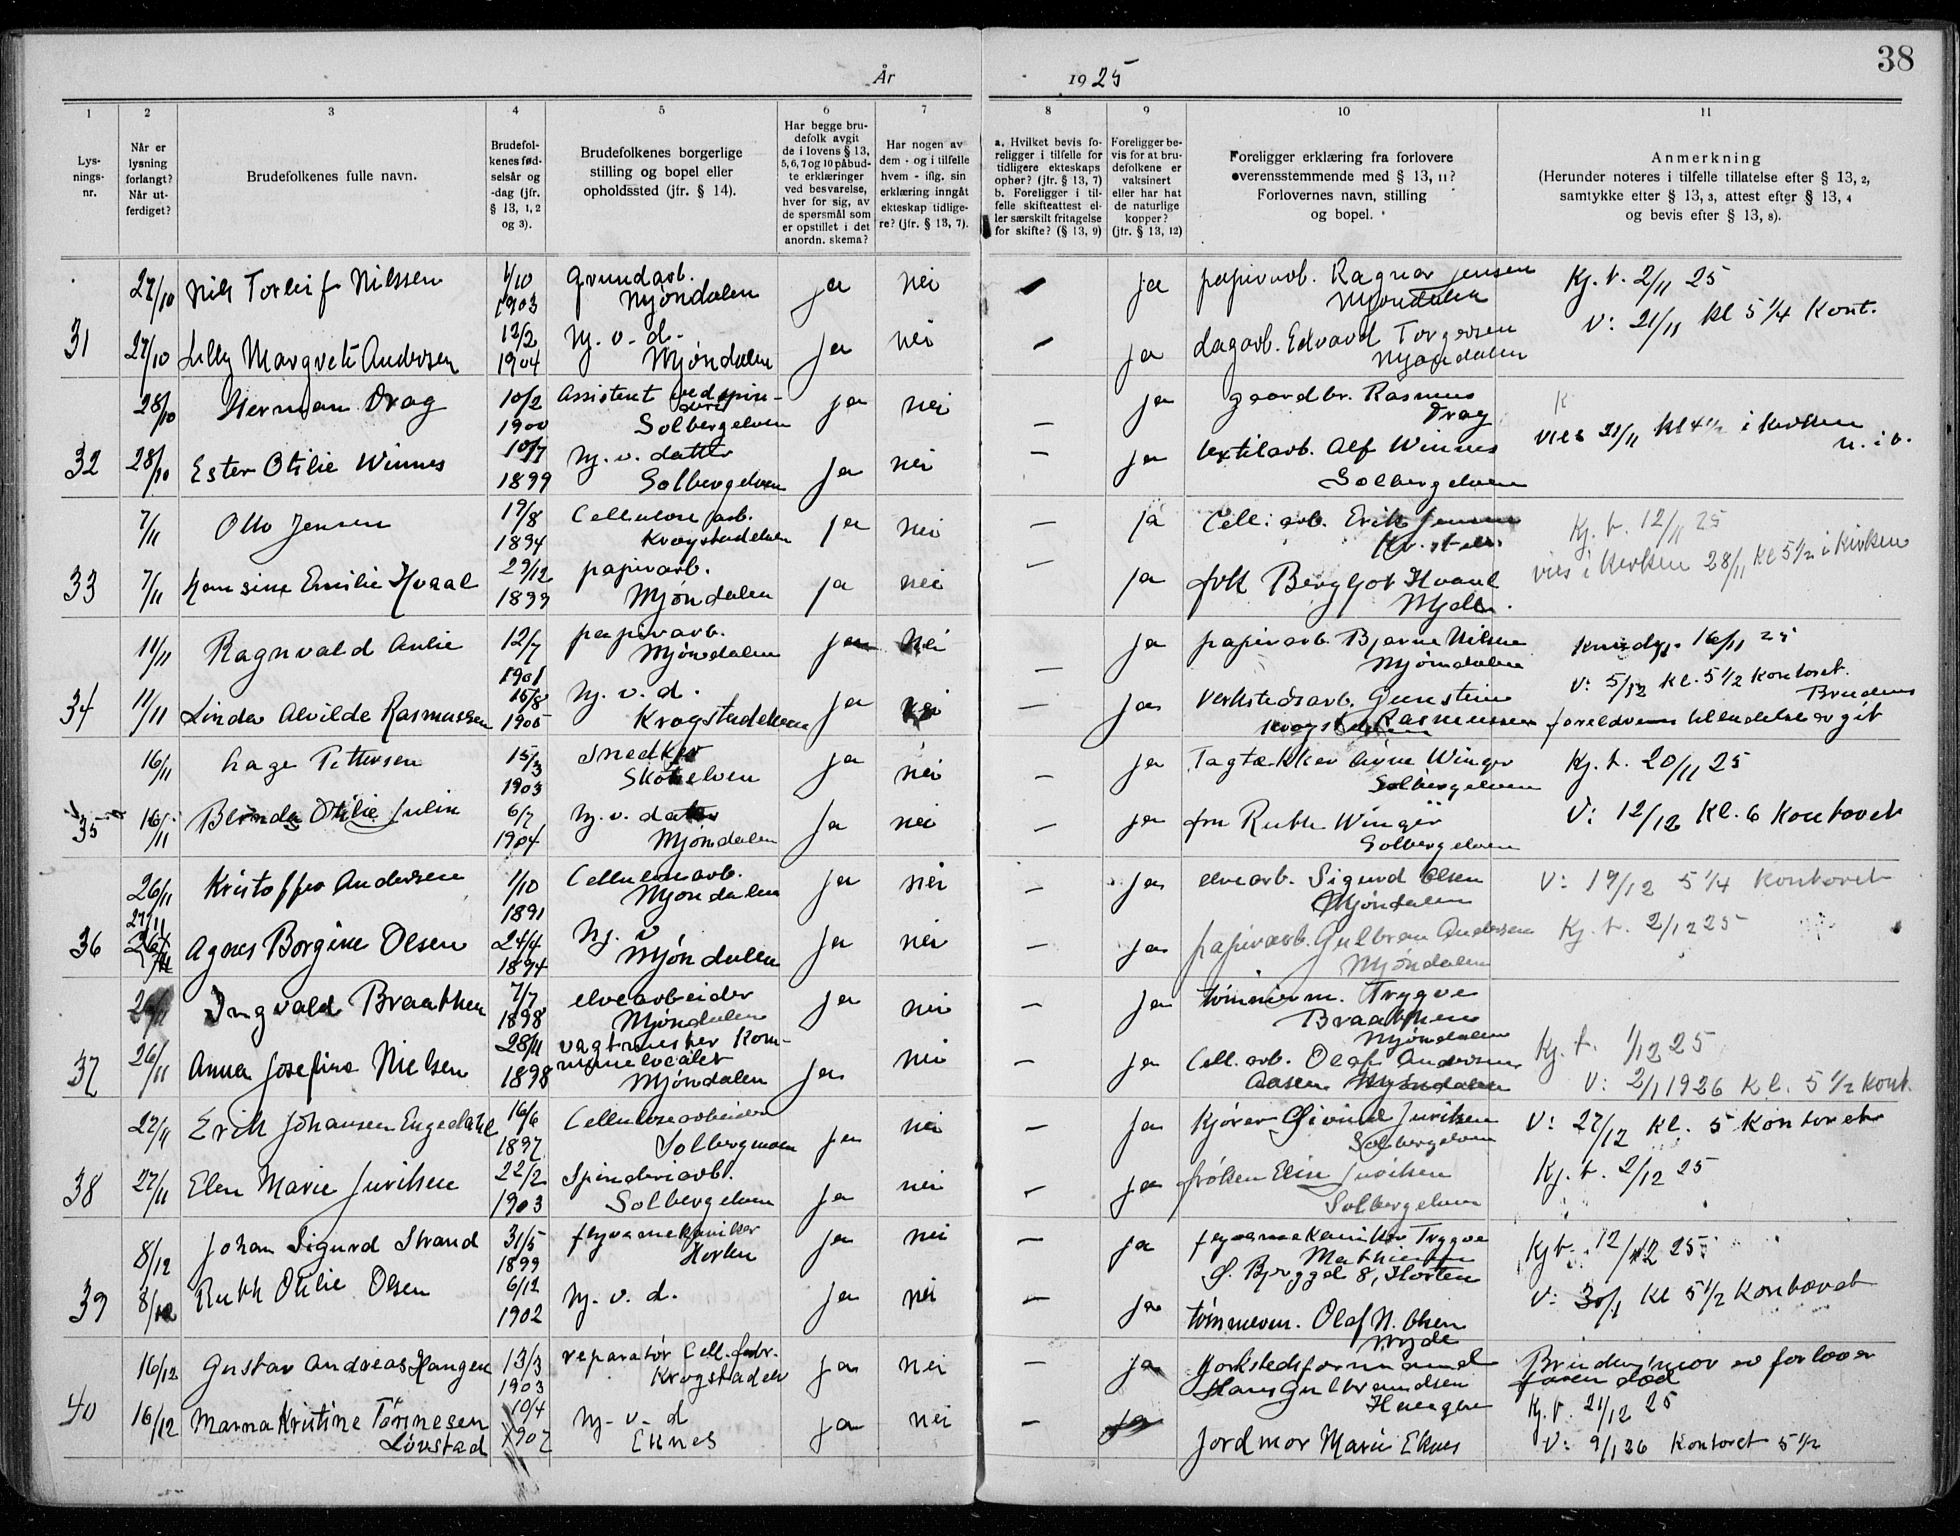 38
År 1925
1 2 3 4 5 6 7 8 9 10 11
Lys-
nings-
nr.
Når er
lysning
forlangt?
Når ut-
ferdiget?
Brudefolkenes fulle navn.
Brudefol-
kenes fød-
selsår og
-dag (jfr.
§ 13, 1, 2
og 3).
Brudefolkenes borgerlige
stilling og bopel eller
opholdssted (jfr. § 14).
Har begge bru-
defolk avgit
de i lovens § 13,
5, 6, 7 og 10 påbud-
te erklæringer
ved besvarelse,
hver for sig, av
de spørsmål som
er opstillet i det
anordn. skema?
Har nogen av
dem - og i tilfelle
hvem - iflg. sin
erklæring inngått
ekteskap tidlige-
re? (jfr. § 13, 7).
a. Hvilket bevis fo-
religger i tilfelle for
tidligere ekteskaps
ophør? (jfr. § 13, 7)
b. Foreligger i til-
felle skifteattest el-
ler særskilt fritagelse
for skifte? (§ 13, 9)
Foreligger be-
vis for at bru-
defolkene er
vaksinert
eller har hat
de naturlige
kopper?
(jfr. § 13, 12)
Foreligger erklæring fra forlovere
overensstemmende med § 13, 11?
Forlovernes navn, stilling
og bopel.
Anmerkning
(Herunder noteres i tilfelle tillatelse efter § 13, 2,
samtykke efter § 13, 3, attest efter § 13, 4
og bevis efter § 13, 8).
27/10 Nils Torleif Nilssen 1/10 1903 grundarb. Mjøndalen ja nei — ja papirarb. Ragnar Jensen Mjøndalen Kj. t. 2/11 25
V: 21/11 kl 5 1/4 Kont.
31 27/10 Lilly Margrete Andersen 12/2 1904 Hj. v. d. Mjøndalen ja nei — ja dagarb. Edvard Torgersen Mjøndalen
28/10 Herman Drag 10/2 1900 Assistent ved spin-
deri Solbergelven ja nei — ja gaardbr. Rasmus Drag
vies 21/11 kl 4 1/2 i kirken
32 28/10 Ester Otilie Winnes 10/7 1899 Hj. v. datter Solbergelven ja nei — ja textilarb. Alf Winnes Solbergelven
7/11 Otto Jensen 19/8 1894 Cellulose arb. Krogstadelven ja nei — ja Cell. arb. Erik Jensen Kj. t. 12/11 25
vies i Kirken 28/11 Kl 5 1/2 i Kirken
33 7/11 Hansine Emilie Hvaal 29/12 1899 papirarb. Mjøndalen ja nei — ja frk Bergljot Hvaal Mjdln.
11/11 Ragnvald Aulie 12/7 1901 papirarb. Mjøndalen ja nei — ja papirarb. Bjarne Nilsen Mjøndalen 16/11 25
V: 5/12 kl. 5 1/2 kontoret.
Brudens
foreldrenes tilladelse avgit
34 11/11 Linda Alvilde Rasmussen 15/8 1905 Hj. v. d. Krogstadelven ja nei — ja Verkstedsarb. Gunstein Rasmussen
16/11 Lage Pettersen 15/3 1903 Snedker Skotselven ja nei — ja Tagtækker Arne Winger Solbergelven Kj. t. 20/11 25
V: 12/12 Kl. 6 Kontoret
35 16/11 Blenda Otilie Julin 6/7 1904 Hj. v. datter Mjøndalen ja nei — ja fru Ruth Winger Solbergelven
26/11 Kristoffer Andersen 1/10 1891 Cellulosearb. Mjøndalen ja nei — ja elvearb. Sigurd Olsen Mjøndalen V: 19/12 5 1/4 Kontoret
27/11
36 26/11 Agnes Borgine Olsen 24/4 1894 Hj. v Mjøndalen ja nei — ja papirarb. Gulbran Andersen Mjøndalen Kj. t. 2/12 25
26/11 Ingvald Braathen 7/7 1898 elvearbeider Mjøndalen ja nei — ja tømmerm. Trygve Braathen Mjøndalen
37 26/11 Anna Josefine Nielsen 28/11 1898 vagtmester Kom-
munelocalet Mjøndalen ja nei — ja Cell. arb. Olaf Andersen Aasen Mjøndalen Kj. t. 1/12 25
V: 2/1 1926 Kl. 5 1/2 Kont.
27/11 Erik Johansen Engedahl 16/6 1897 Cellulosearbeider Solbergmoen ja nei — ja Kjører Øivind Juriksen Solbergelven V: 27/12 Kl. 5 Kontoret
38 27/11 Elen Marie Juriksen 22/2 1903 Spinderiarb. Solbergelven ja nei — ja frøken Elin Juriksen Solbergelven Kj. t. 2/12 25
8/12 Johan Sigurd Strand 31/5 1899 flyvemekaniker Horten ja nei — ja flyvemekaniker Trygve Mathiesen
Ø. Bjerggt 8, Horten Kj t. 12/12 25
39 8/12 Ruth Otilie Olsen 6/12 1902 Hj. v. d. ja nei — ja tømmerm. Olaf N. Olsen V: 30/1 kl 5 1/2 Kontoret
16/12 Gustav Andreas Haugen 13/3 1903 reparatør Cell. fabr. Krogstadelv ja nei — ja Verkstedsformand Hans Gulbrandsen Haugen Brudens mor er forlover
faren død
40 16/12 Marna Kristine Tørinesen Løvstad 10/4 1907 Hj. v. d Eknes ja nei — ja Jordmor Marie Eknes Kj. t. 21/12 25
V: 9/1 26 Kontoret 5 1/2